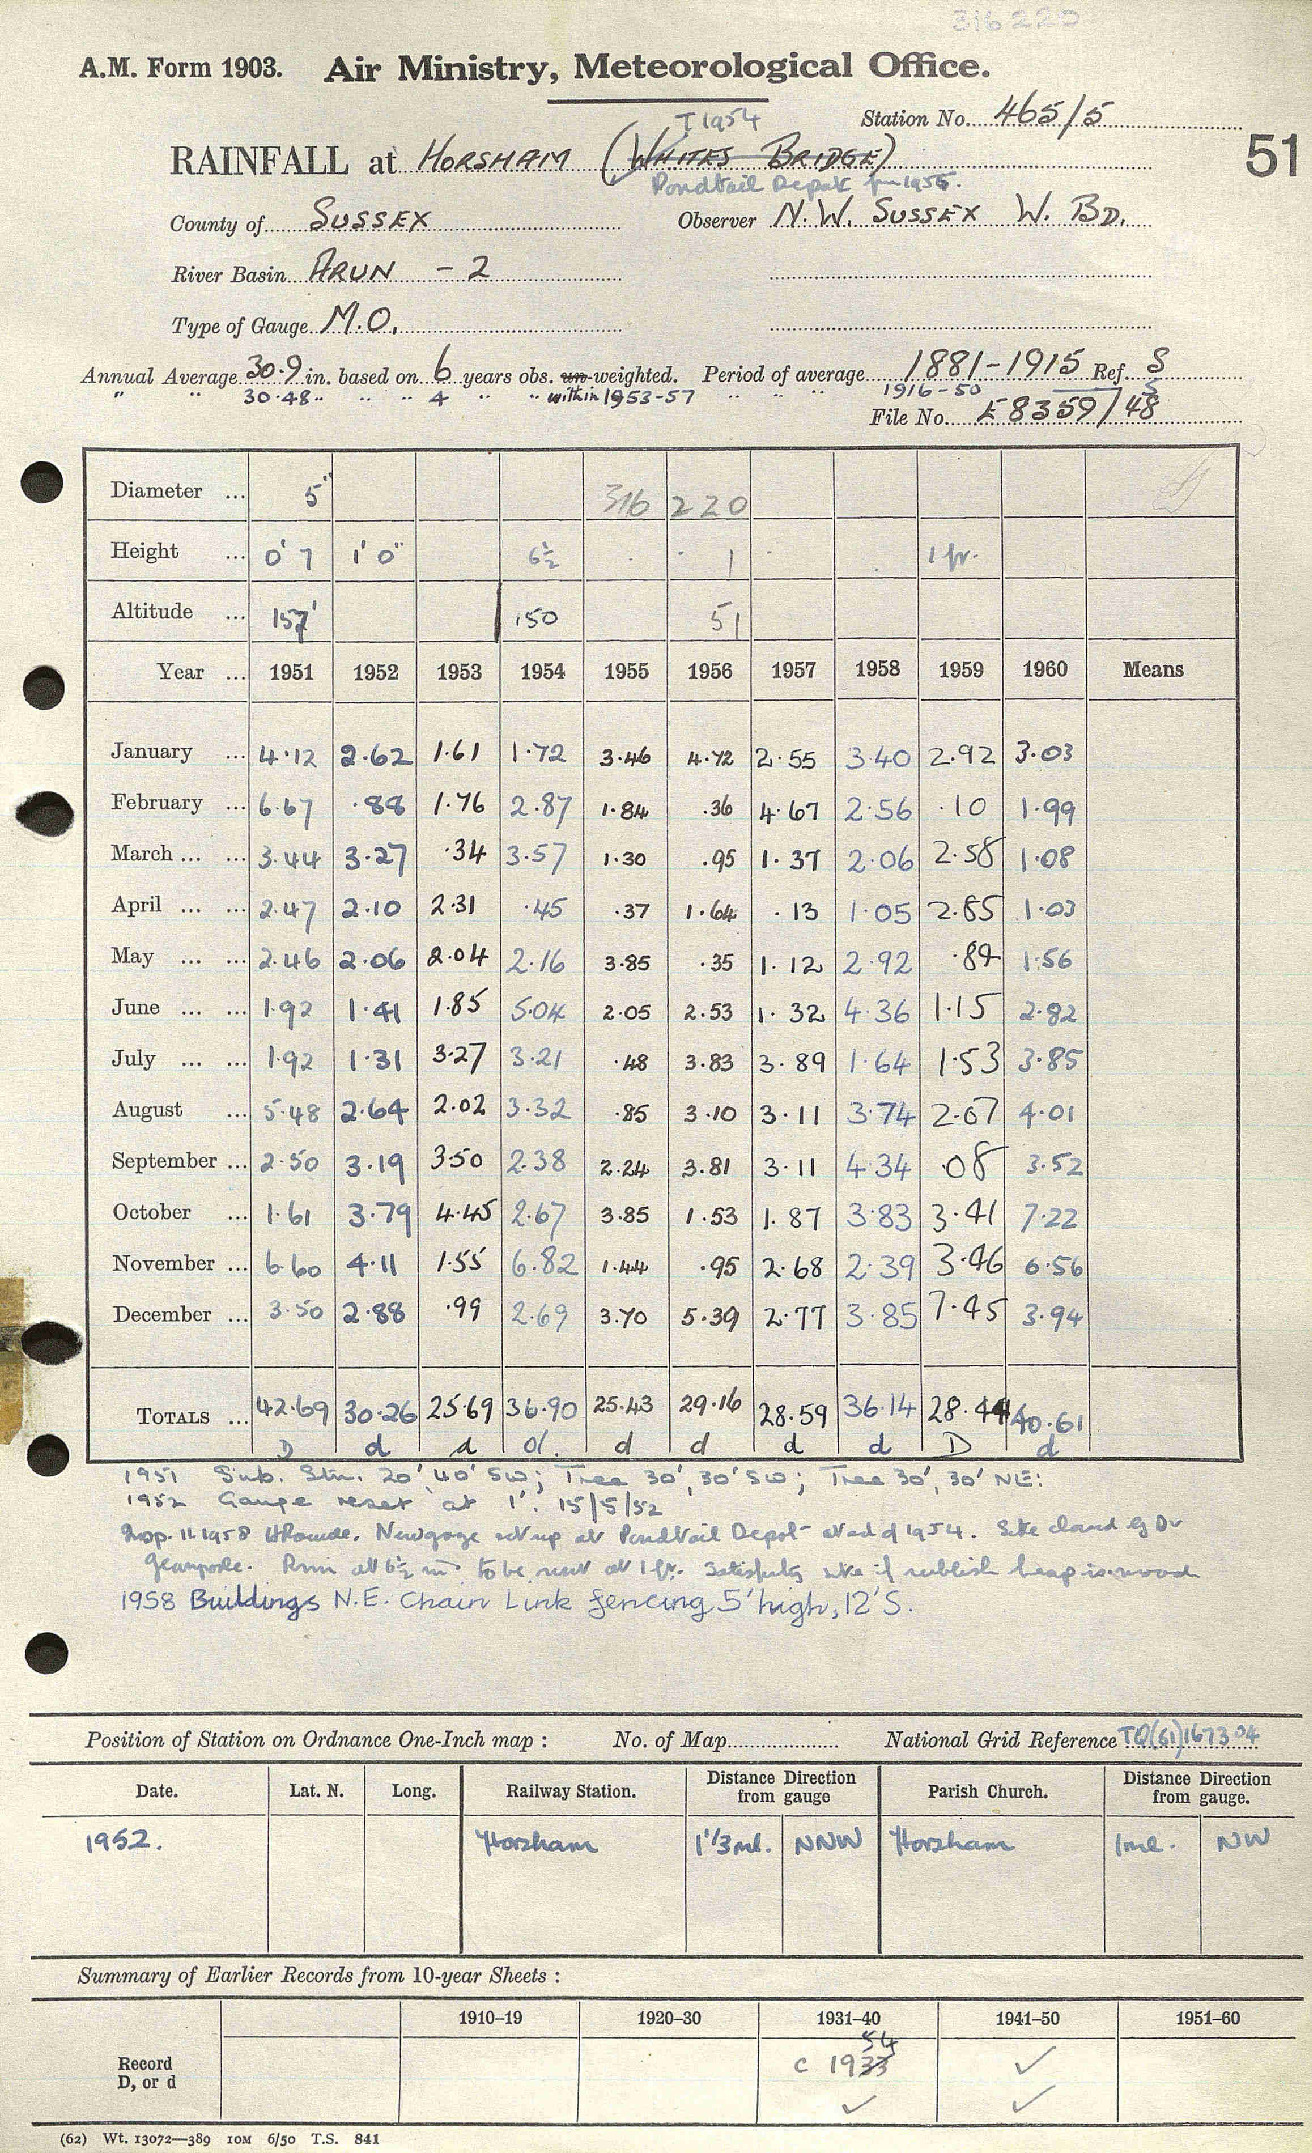 316220
A.M. Form 1903. Air Ministry, Meteorological Office.
T 1954
Station No. 465/5
RAINFALL at HORSHAM (WHITES BRIDGE)
51
Pondtail Depot fm 1955.
County of SUSSEX Observer N.W. SUSSEX W. BD.
River Basin ARUN - 2
Type of Gauge M.O.
Annual Average 30.9 in. based on 6 years obs. un-weighted. Period of average 1881-1915 Ref. S
" " 30.48 " " " 4 " " within 1953-57 " " " 1916-50 S
File No. E 8359/48
Diameter ... 5" 316 220
Height ... 0' 7 1' 0" 6½ 1 1 fr.
Altitude ... 157' 150 51
Year ... 1951 1952 1953 1954 1955 1956 1957 1958 1959 1960 Means
January ... 4.12 2.62 1.61 1.72 3.46 4.72 2.55 3.40 2.92 3.03
February ... 6.67 .88 1.76 2.87 1.84 .36 4.67 2.56 .10 1.99
March ... ... 3.44 3.27 .34 3.57 1.30 .95 1.37 2.06 2.58 1.08
April ... ... 2.47 2.10 2.31 .45 .37 1.64 .13 1.05 2.85 1.03
May ... ... 2.46 2.06 2.04 2.16 3.85 .35 1.12 2.92 .89 1.56
June ... ... 1.92 1.41 1.85 5.04 2.05 2.53 1.32 4.36 1.15 2.82
July ... ... 1.92 1.31 3.27 3.21 .48 3.83 3.89 1.64 1.53 3.85
August ... 5.48 2.64 2.02 3.32 .85 3.10 3.11 3.74 2.07 4.01
September ... 2.50 3.19 3.50 2.38 2.24 3.81 3.11 4.34 .08 3.52
October ... 1.61 3.79 4.45 2.67 3.85 1.53 1.87 3.83 3.41 7.22
November ... 6.60 4.11 1.55 6.82 1.44 .95 2.68 2.39 3.46 6.56
December ... 3.50 2.88 .99 2.69 3.70 5.39 2.77 3.85 7.45 3.94
TOTALS ... 42.69 30.26 25.69 36.90 25.43 29.16 28.59 36.14 28.44 40.61
D d d d. d d d d D d
1951 Sub. Stn. 20', 40' SW; Tree 30', 30' SW; Tree 30', 30' NE:
1952 Gauge reset at 1'. 15/5/52
Insp. 11.1958 New gauge set up at Pondtail Depot at end of 1954. Site
Rim at 6½ in. to be reset at 1 fr. Satisfactory site if rubbish heap is moved
1958 Buildings N.E. Chain Link fencing 5' high, 12' S.
Position of Station on Ordnance One-Inch map : No. of Map National Grid Reference TQ(51)167304
Date. Lat. N. Long. Railway Station. Distance Direction from gauge Parish Church. Distance Direction from gauge.
1952. Horsham 1 1/3 ml. NNW Horsham 1 ml. NW
Summary of Earlier Records from 10-year Sheets :
1910–19 1920–30 1931–40 1941–50 1951–60
Record D, or d
54
c 1933 ✓
✓ ✓
(62) Wt. 13072—389 10M 6/50 T.S. 841